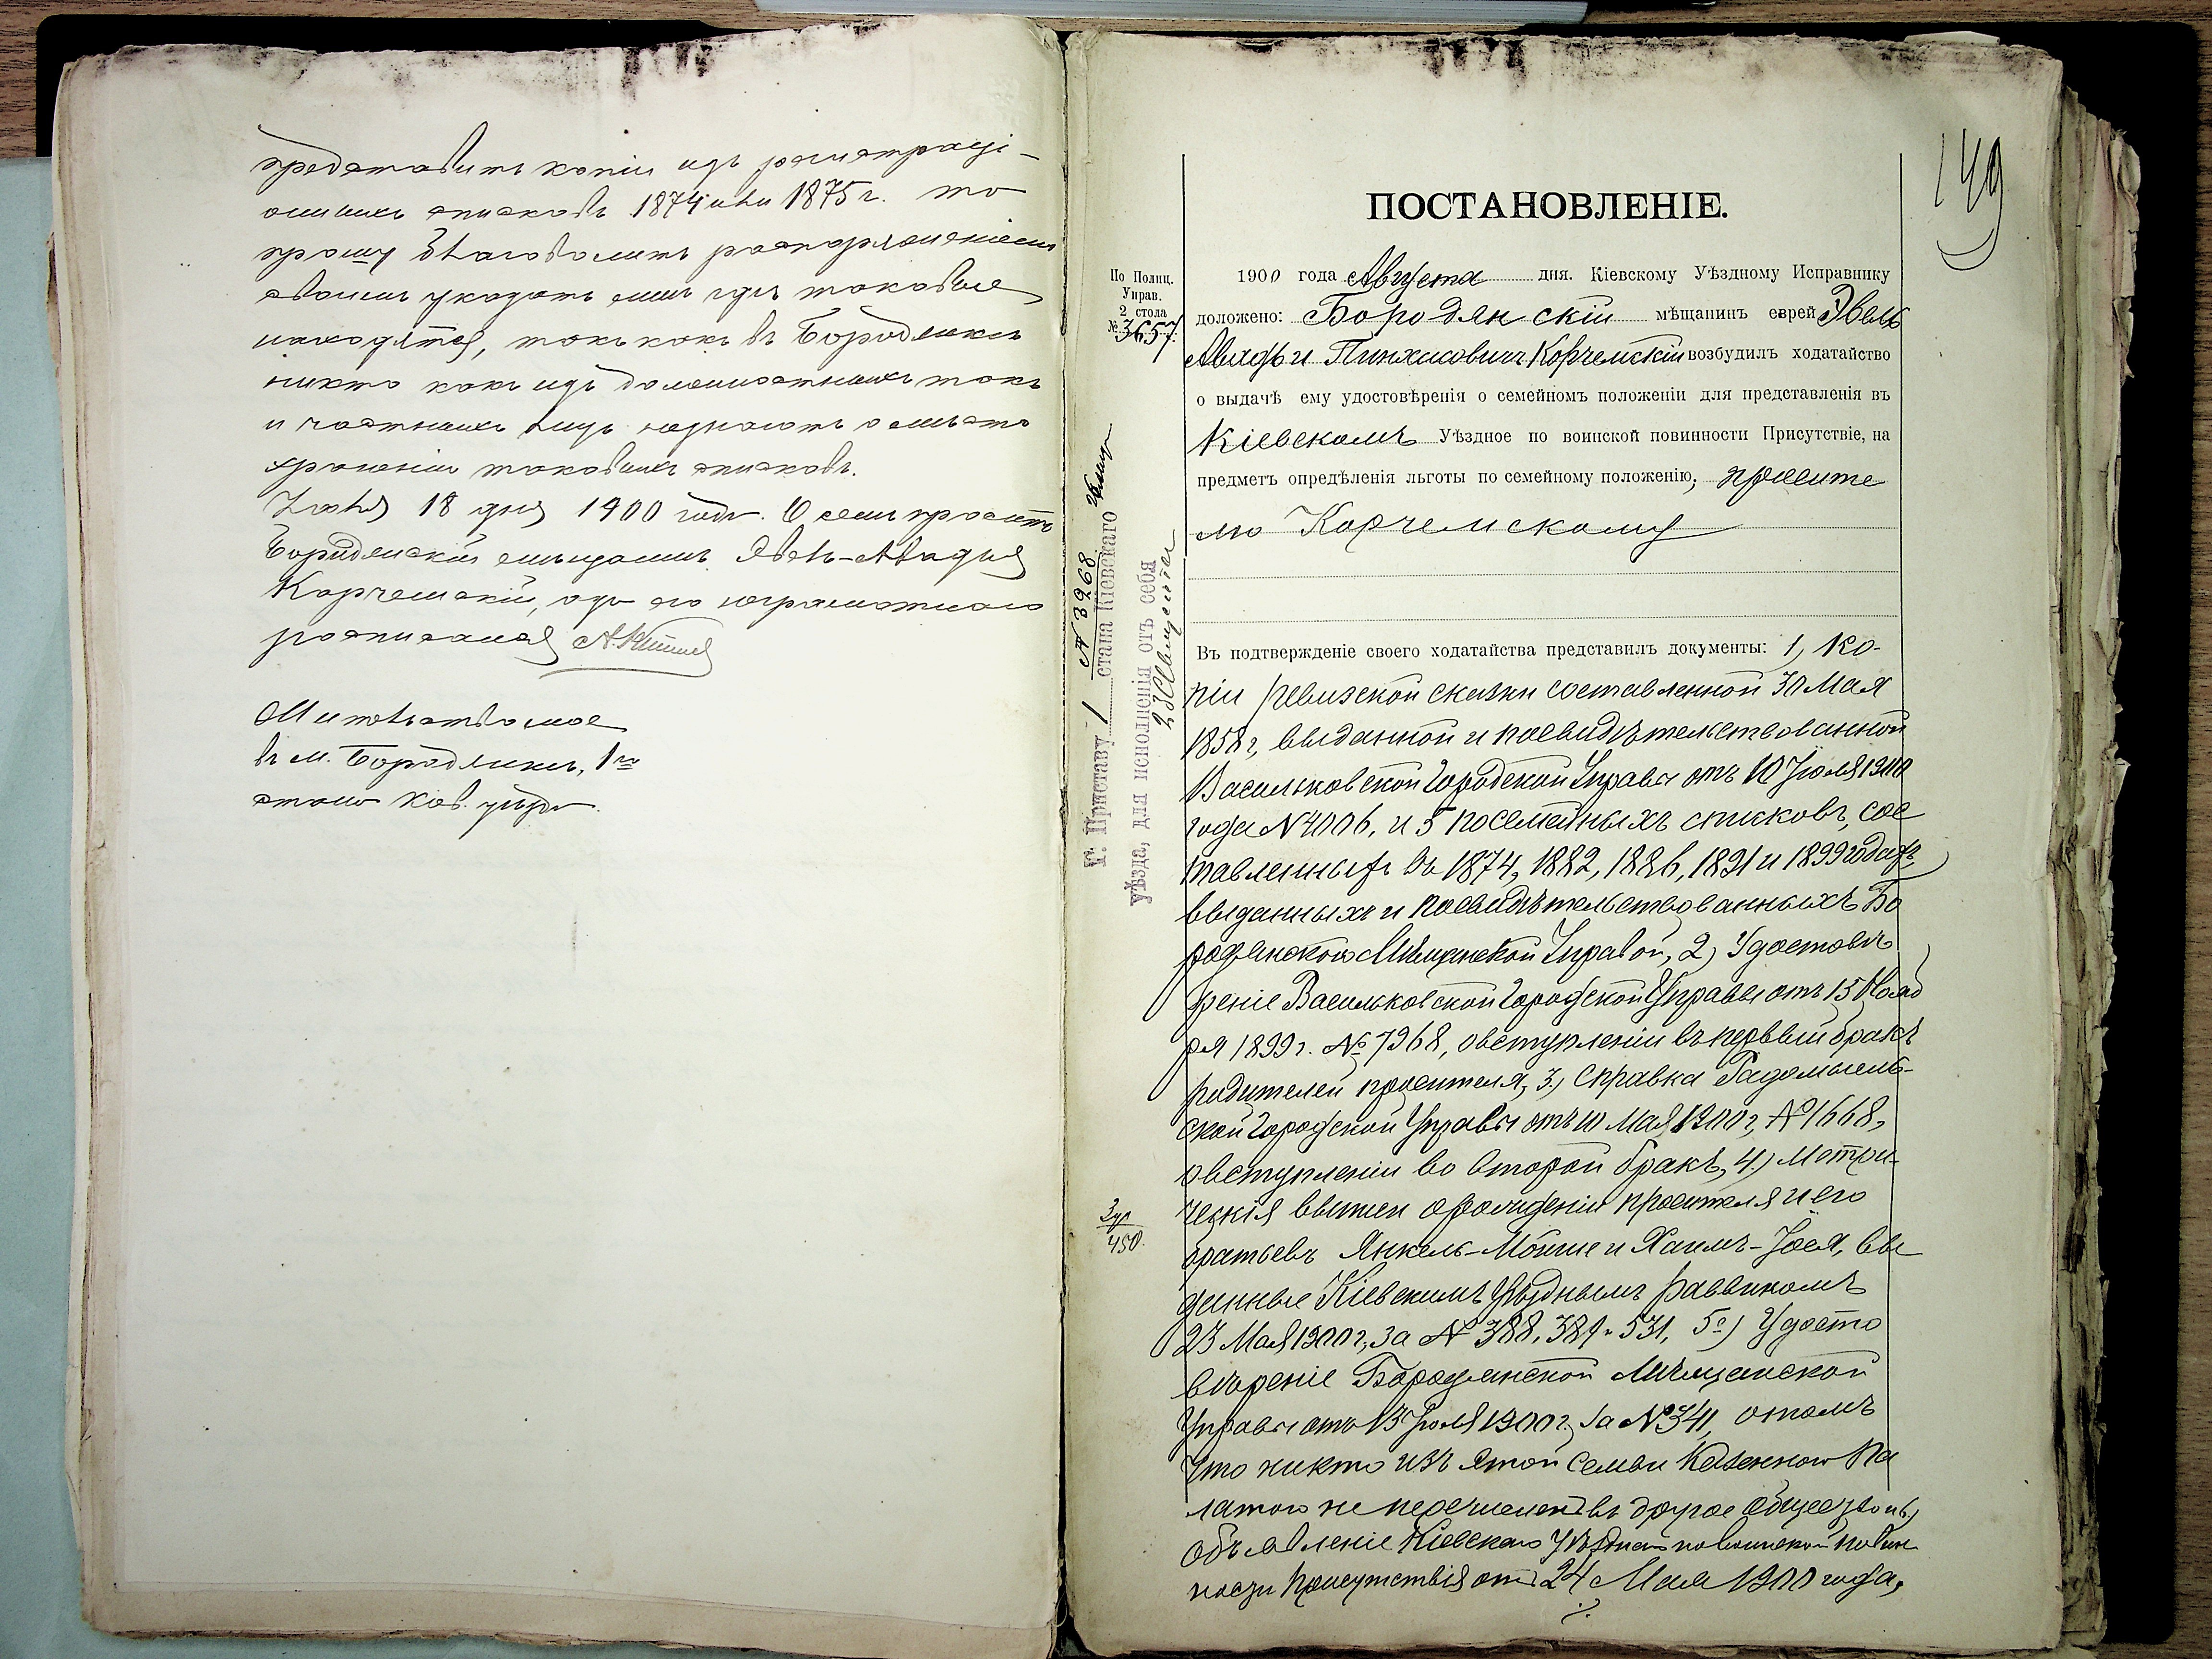 представить копіи изъ регистраці-
онныхъ списковъ 1874 или 1875 г. то
прошу благоволить распоряженіемъ
своимъ указать мнѣ гдѣ таковые
находятся, такъ какъ въ Бородянкѣ
никто какъ изъ должностныхъ такъ
и частныхъ лицъ незнаютъ о мѣстѣ
храненіи таковыхъ списковъ.
18 дня 1900 года. О семъ проситъ
Бородянскій мѣщанинъ Эвель-Авадья
Корчемскій, а за его неграмотнаго
росписался
Жительство мое
въ м. Бородянкѣ, 1го
стана Кіев. уѣзда.
149
ПОСТАНОВЛЕНІЕ.
По Полиц.
Управ.
2 стола
№ 3657.
1900 года Августа дня. Кіевскому Уѣздному Исправнику
доложено: Бородянскій мѣщанинъ еврей Эвель
Авадья Пинхасовичъ Корчемскій возбудилъ ходатайство
о выдачѣ ему удостовѣренія о семейномъ положеніи для представленія въ
Кіевскомъ Уѣздное по воинской повинности Присутствіе, на
предметъ опредѣленія льготы по семейному положенію, просите
лю Корчемскому
№ 3968
Г. Приставу 1 стана Кіевскаго
уѣзда, для исполненія отъ себя
Въ подтвержденіе своего ходатайства представилъ документы: 1, Ко-
піи ревизской сказки составленной 30 Мая
1858 г, выданной и посвидѣтельствованной
Васильковской Городской Управы отъ 10 Іюля 1900
года № 4006, и 5 посемейныхъ списковъ, сос
тавленныхъ въ 1874, 1882, 1886, 1891 и 1899 годахъ,
выданныхъ и посвидѣтельствованныхъ Бо
родянскою Мѣщанской Управой, 2) Удостовѣ
реніе Васильковской Городской Управы отъ 15 Нояб
ря 1899 г. № 7968, овступленіи въ первый бракъ
родителей просителя, 3.) Справка Радомысль-
ской Городской Управы отъ 10 Мая 1900 г, № 1668,
овступленіи во второй бракъ, 4.) Метри-
ческія выписи орожденіи просителя и его
братьевъ Янкель-Мошие и Хаимъ-Іося, вы
данные Кіевскимъ Уѣзднымъ раввиномъ
23 Мая 1900 г, за № 388, 389 и 531, 5) Удосто
вѣреніе Бородянской Мѣщанской
Управы отъ 13 Іюля 1900 г, за № 341, отомъ
что никто изъ этой семьи Казенною Па
латою не перечисленъ въ другое общество и 6,)
Объявленіе Кіевскаго Уѣзднаго повоинской повин
ности Присутствія отъ 24 Мая 1900 года,
450.